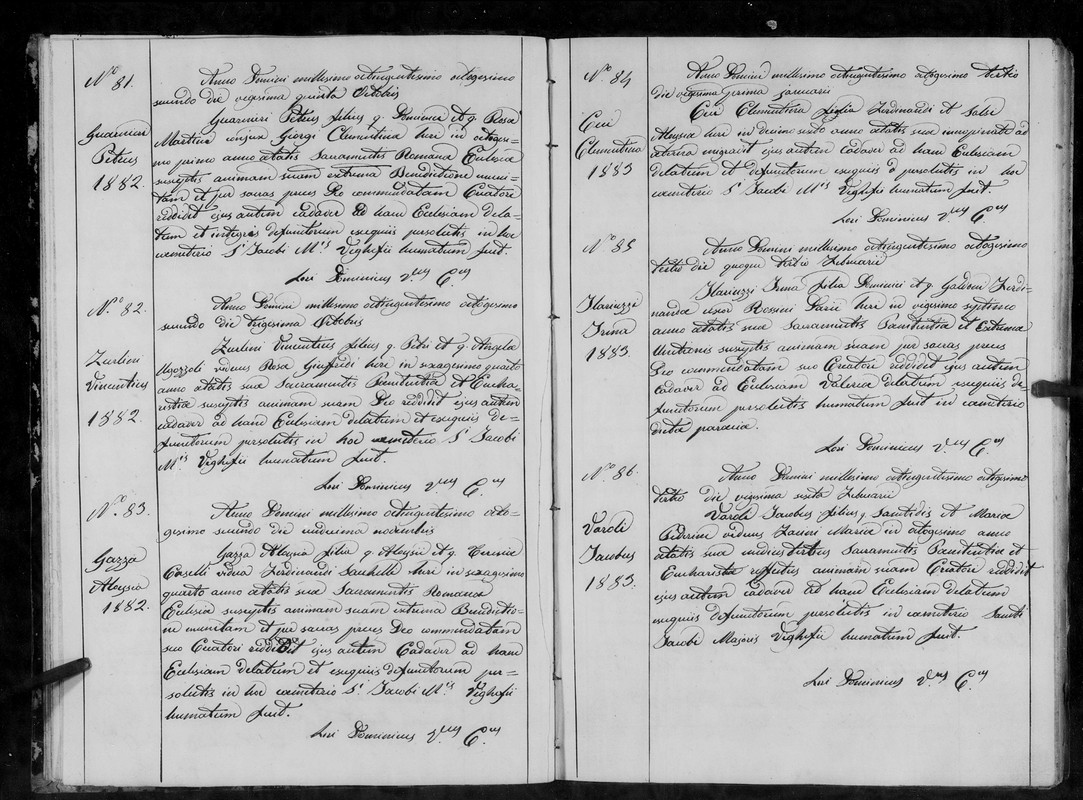 N.º 81.
Guarnieri
Petrus
1882.
Anno Domini millesimo octingentesimo octogesimo
secundo die vigesima quarta Octobris
Guarnieri Petrus filius q. Dominici et q. Rosa
Martini conjux Giorgi Clementina heri in octoges=
mo primo anno ætatis Sacramentis Romana Ecclesia
susceptis animam suam extrema Benedictione muni=
tam et per sacras preces Deo commendatam Creatori
reddidit ejus autem cadaver ad hanc Ecclesiam dela=
tum et integris defunctorum exequiis persolutis in hoc
cœmeterio S.ti Jacobi M.is Vighefii humatum fuit.
Lori Dominicus V.ius C.us
N.º 82.
Zurlini
Vincentius
1882.
Anno Domini millesimo octingentesimo octogesimo
secundo die trigesima Octobris
Zurlini Vincentius filius q. Petri et q. Angela
Ugozzoli viduus Rosa Giuffredi heri in sexagesimo quarto
anno ætatis sua Sacramentis Penitentia et Eucha=
ristia susceptis animam suam Deo reddidit ejus autem
cadaver ad hanc Ecclesiam delatum et exequiis de=
functorum persolutis in hoc cemeterio S.ti Jacobi
M.is Vighefii humatum fuit.
Lori Dominicus V.ius C.us
N.º 83.
Gazza
Aloysia
1882.
Anno Domini millesimo octingentesimo octo=
gesimo secundo die undecima novembris
Gazza Aloysia filia q. Aloysii et q.
Caselli vidua Ferdinandi heri in sexagesimo
quarto anno ætatis sua Sacramentis Romana
Ecclesia susceptis animam suam extrema Benedictio=
ne munitam et per sacras preces Deo commendatam
suo Creatori reddidit ejus autem Cadaver ad hanc
Ecclesiam delatum et exequiis defunctorum per=
solutis in hoc cœmeterio S.ti Jacobi M.is Vighefii
humatum fuit.
Lori Dominicus V.ius C.us
N.º 84
Clementina
1883
Anno Domini millesimo octingentesimo octogesimo tertio
die vigesima prima januarii
Clementina filia Ferdinandi et Salsi
Aloysia heri in decimo sexto anno ætatis sua ad
æterna migravit ejus autem cadaver ad hanc Ecclesiam
delatum et defunctorum exequiis persolutis in hoc
cœmeterio S.ti Jacobi M.is Vighefii humatum fuit.
Lori Dominicus V.ius C.us
N.º 85
Ilariuzzi
Irma
1883.
Anno Domini millesimo octingentesimo octogesimo
tertio die quoque tertia Februarii
Ilariuzzi Irma filia Dominici et q. Galvani Ferdi=
nanda uxor Rossini heri in vigesimo septimo
anno ætatis sua Sacramentis Penitentia et Extrema
Unctionis susceptis animam suam per sacras preces
Deo commendatam suo Creatori reddidit ejus autem
cadaver ad Ecclesiam Valeria delatum exequiis de=
functorum persolutis humatum fuit in cemeterio
dicta parœcia.
Lori Dominicus V.ius C.us
N.º 86.
Varoli
Jacobus
1883.
Anno Domini millesimo octingentesimo octogesimo
tertio die vigesima sexta Februarii
Varoli Jacobus filius q. Santidis et Maria
Pedrini viduus Zanni Maria in octogesimo anno
ætatis sua Sacramentis Penitentia et
Eucharistia refectus animam suam Creatori reddidit
ejus autem cadaver ad hanc Ecclesiam delatum
exequiis defunctorum persolutis in cemeterio Sancti
Jacobi Majoris Vighefii humatum fuit.
Lori Dominicus V.ius C.us